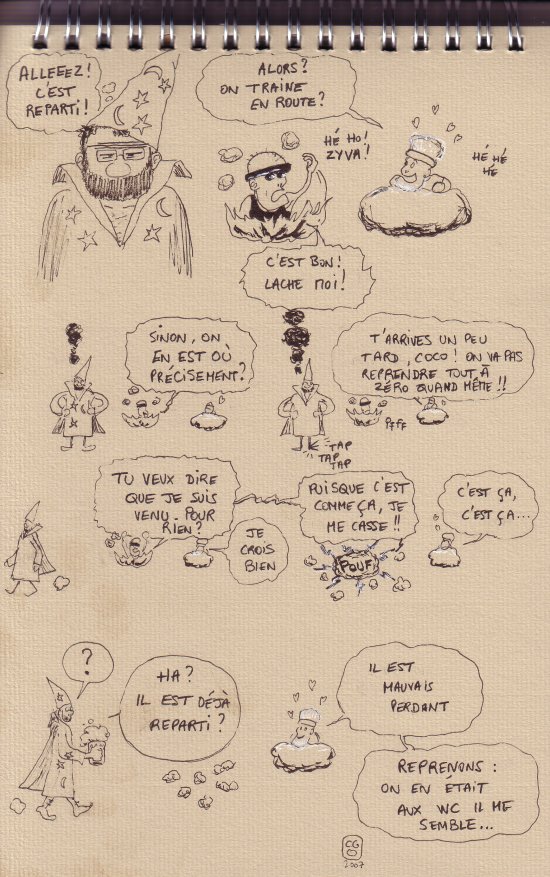 ALLEEEZ!
C'EST
REPARTI!
ALORS?
ON TRAINE
EN ROUTE?
HÉ HO!
ZYVA!
HÉ HÉ
HÉ
C'EST BON!
LACHE MOI!
SINON, ON
EN EST OÙ
PRÉCISEMENT?
T'ARRIVES UN PEU
TARD, COCO! ON VA PAS
REPRENDRE TOUT, À
ZÉRO QUAND MÊME!!
PFFF
TAP
TAP
TAP
TU VEUX DIRE
QUE JE SUIS
VENU POUR
RIEN?
JE
CROIS
BIEN
PUISQUE C'EST
COMME ÇA, JE
ME CASSE!!
POUF
C'EST ÇA,
C'EST ÇA...
?
HA?
IL EST DÉJÀ
REPARTI?
IL EST
MAUVAIS
PERDANT
REPRENONS:
ON EN ÉTAIT
AUX WC IL ME
SEMBLE...
CG
2007